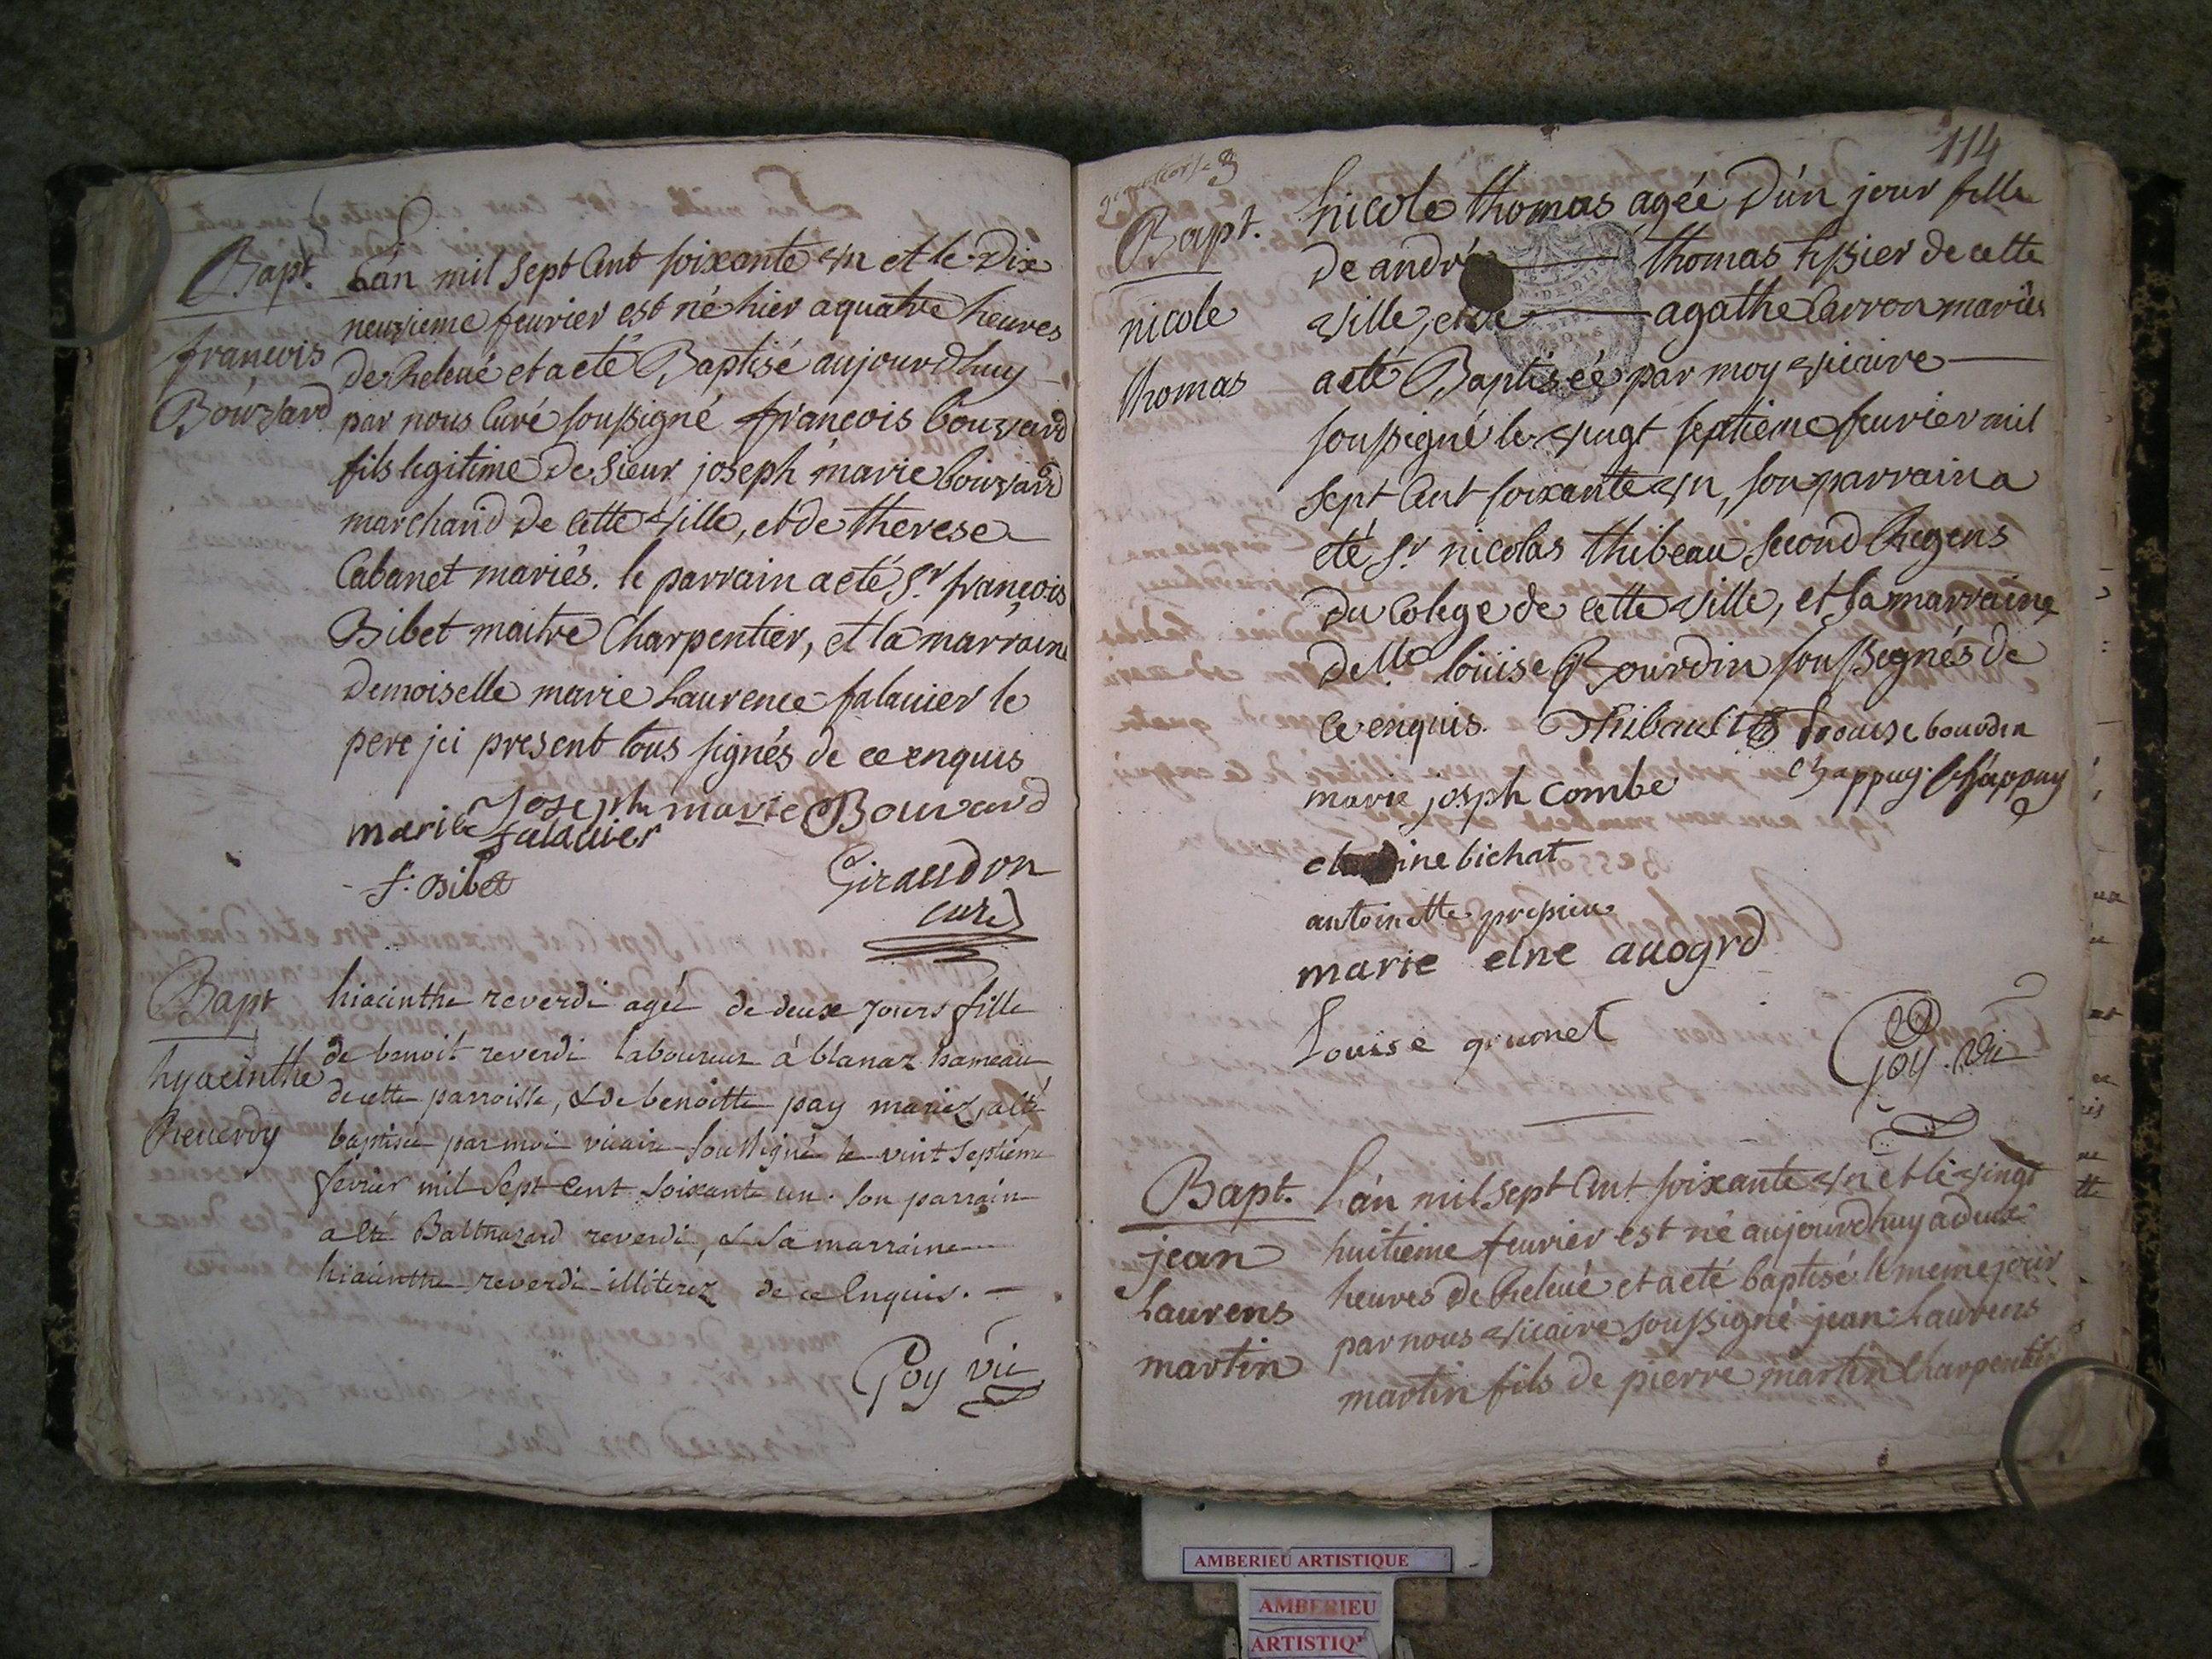 Bapt.
françois
Bouvard
L'an mil sept Cent soixante un et le Dix
neuvieme feuvrier est né hier a quatre heures
de Relevé et a eté Baptisé aujourdhuy
par nous Curé soussigné françois bouvard
fils legitime de sieur joseph marie bouvard
marchand de cette ville, et de therese
Cabanet mariés. le parrain a eté Sr. françois
Bibet maitre Charpentier, et la marraine
Demoiselle marie Laurence falavier le
pere jci present tous signés de ce enquis
Joseph marie Bouvard
marie falavier
f: Bibet
Giraudon
curé
Bapt
hyacinthe
Reverdy
hiacinthe reverdi agée de deux jours fille
de benoit reverdi laboureur à blanaz hameau
de cette parroisse, & de benoitte pay mariez, a eté
baptisée par moi vicaire soussigné le vint septiéme
fevrier mil sept cent soixante un. son parrain
a eté Balthazard reverdi, & sa marraine
hiacinthe reverdi illiterez de ce enquis.
Goy vic
114
Bapt.
nicole
thomas
nicole thomas agée d'un jour fille
de andré thomas tissier de cette
ville, et de agathe Carron mariés
a eté Baptisée par moy vicaire
soussigné le vingt septieme feuvrier mil
sept Cent soixante un, son parrain a
eté Sr. nicolas thibeau second Regens
du Colege de cette ville, et sa marraine
delle. louise Bourdin soussignés de
ce enquis. Thibault Louise bourdin
marie josph combe chappuy. Chappuy
bichat
antoinette
marie elne auogrd
Louise grumel
Goy. vic
Bapt.
jean
Laurens
martin
L'an mil sept Cent soixante un et le vingt
huitieme feuvrier est né aujourdhuy a deux
heures de Relevé et a eté baptisé le meme jour
par nous vicaire soussigné jean Laurens
martin fils de pierre martin Charpentier
AMBERIEU ARTISTIQUE
AMBERIEU
ARTISTIQ